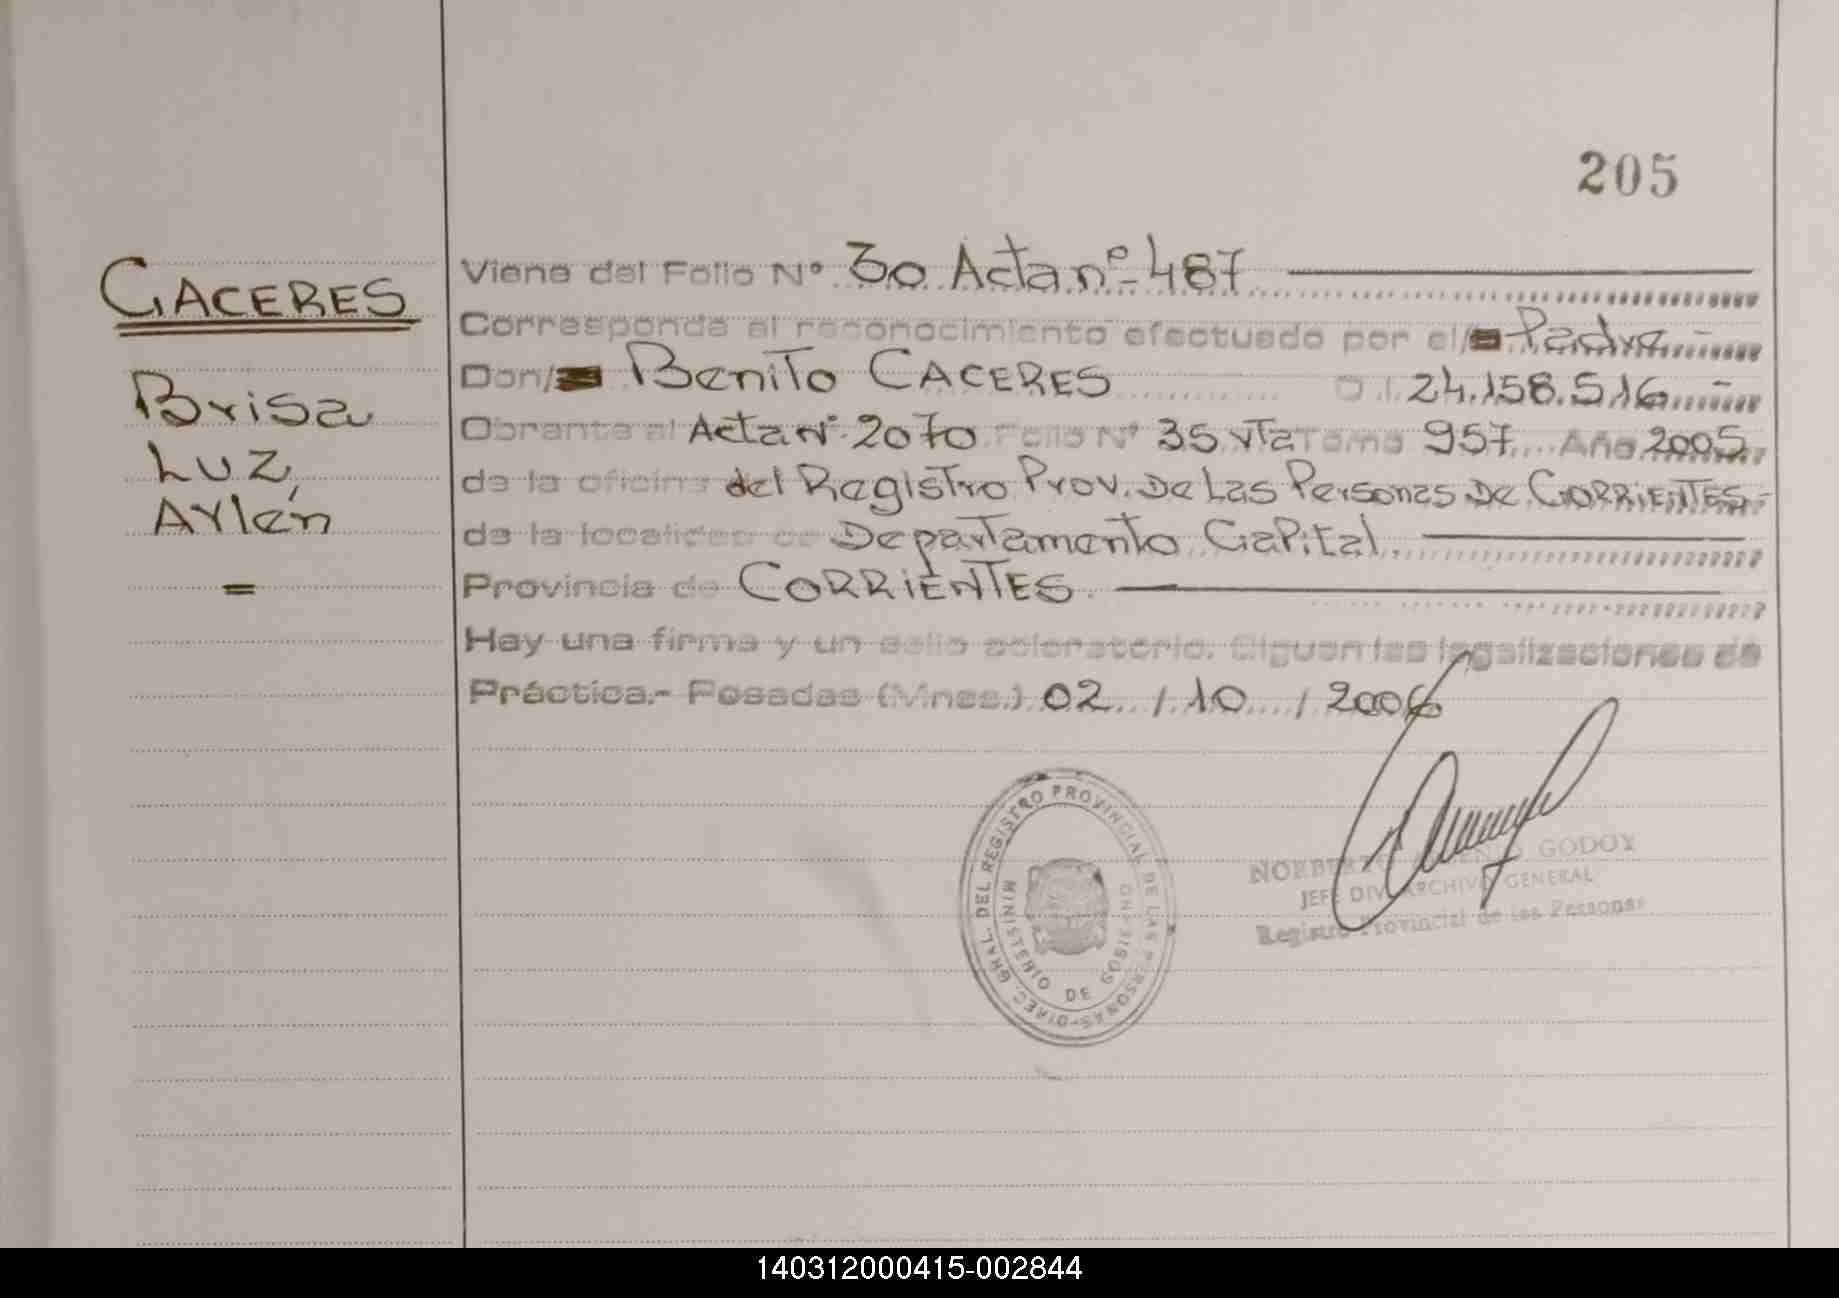 205
CACERES
Brisa
Luz,
Aylen
=
Viene del Folio Nº 30 Acta nº 487
Corresponde al reconocimiento efectuado por el/ Padre -
Don/ Benito CACERES D.I. 24.158.516 -
Obrante al Acta Nº 2070 Folio Nº 35 vta Tomo 957 Año 2005
de la oficina del Registro Prov. De Las Personas De CORRIENTES -
de la localidad de Departamento Capital.
Provincia de CORRIENTES
Hay una firma y un sello aclaratorio. Siguen las legalizaciones de
Práctica.- Posadas (Mnes.) 02 / 10 / 2006
DIREC. GRAL. DEL REGISTRO PROVINCIAL DE LAS PERSONAS-
MINISTERIO DE GOBIERNO
NORBERTO GODOY
JEFE DIV. ARCHIVO GENERAL
Registro Provincial de las Personas
140312000415-002844